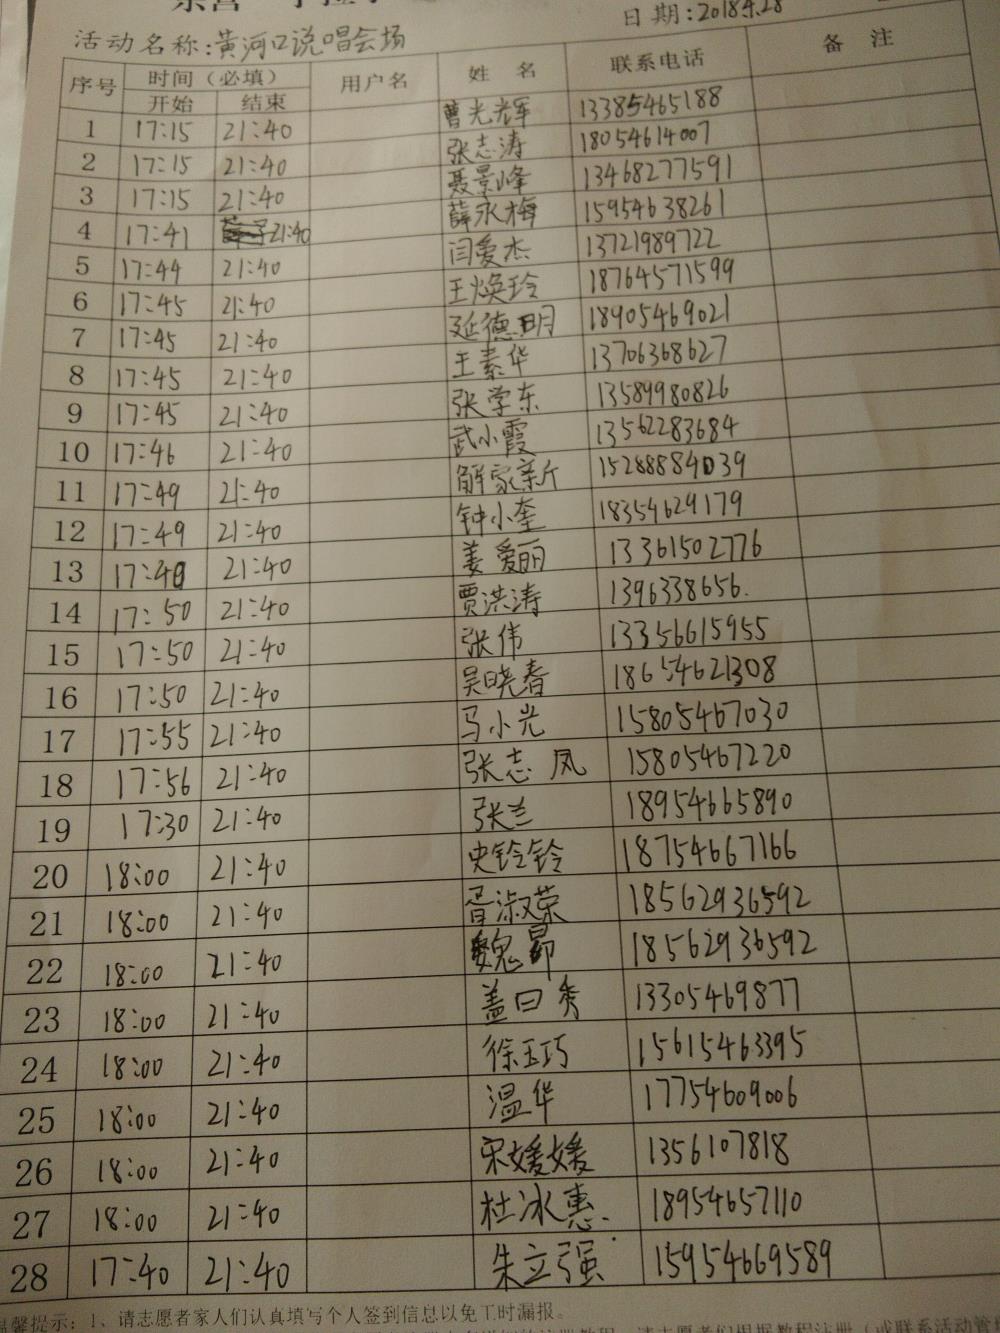 日期:2018.4.28
活动名称:黄河口说唱会场
序号 时间（必填） 用户名 姓 名 联系电话 备 注
开始 结束
1 17:15 21:40 曹光辉 13385465188
2 17:15 21:40 张志涛 18054614007
3 17:15 21:40 聂景峰 13468277591
4 17:41 21:40 薛永梅 15954638261
5 17:44 21:40 闫爱杰 13721989722
6 17:45 21:40 王焕玲 18764571599
7 17:45 21:40 延德明 18905469021
8 17:45 21:40 王素华 13706368627
9 17:45 21:40 张学东 13589980826
10 17:46 21:40 武小霞 13562283684
11 17:49 21:40 解家新 15288884039
12 17:49 21:40 钟小奎 18354629179
13 17:49 21:40 姜爱丽 13361502776
14 17:50 21:40 贾洪涛 1396338656.
15 17:50 21:40 张伟 13356615955
16 17:50 21:40 吴晓春 18654621308
17 17:55 21:40 马小光 15805467030
18 17:56 21:40 张志凤 15805467220
19 17:30 21:40 张兰 18954665890
20 18:00 21:40 史铃铃 18754667166
21 18:00 21:40 胥淑荣 18562936592
22 18:00 21:40 魏昴 18562936592
23 18:00 21:40 盖曰秀 13305469877
24 18:00 21:40 徐玉巧 15615463395
25 18:00 21:40 温华 17754609006
26 18:00 21:40 宋媛媛 1356107818
27 18:00 21:40 杜冰惠 18954657110
28 17:40 21:40 朱立强 15954669589
温馨提示: 1、请志愿者家人们认真填写个人签到信息以免工时漏报。